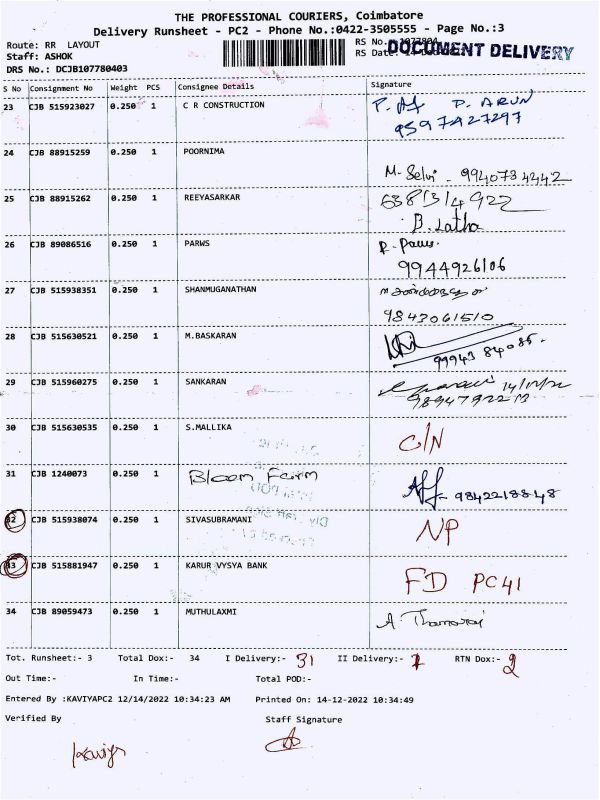 THE PROFESSIONAL COURIERS, Coimbatore
Delivery Runsheet - PC2 - Phone No.:0422-3505555 - Page No.:3
Route: RR LAYOUT
RS No.
Staff: ASHOK
RS Date:
DOCUMENT DELIVERY
DRS No.: DCJB107780403
S No Consignment No Weight PCS Consignee Details Signature
23 CJB 515923027 0.250 1 C R CONSTRUCTION P. ARUN
9597427297
24 CJB 88915259 0.250 1 POORNIMA
M. Selvi - 9940734242
25 CJB 88915262 0.250 1 REEYASARKAR 6381314922
B. Latha
26 CJB 89086516 0.250 1 PARWS
9944926106
27 CJB 515938351 0.250 1 SHANMUGANATHAN
9843061510
28 CJB 515630521 0.250 1 M.BASKARAN
99943 84086.
29 CJB 515960275 0.250 1 SANKARAN 14/12/22
30 CJB 515630535 0.250 1 S.MALLIKA C/N
31 CJB 1240073 0.250 1 Bloom Farm
9842218848
32 CJB 515938074 0.250 1 SIVASUBRAMANI NP
33 CJB 515881947 0.250 1 KARUR VYSYA BANK FD PC41
34 CJB 89059473 0.250 1 MUTHULAXMI A. Thamarai
Tot. Runsheet:- 3 Total Dox:- 34 I Delivery:- 31 II Delivery:- 1 RTN Dox:- 2
Out Time:- In Time:- Total POD:-
Entered By :KAVIYAPC2 12/14/2022 10:34:23 AM Printed On: 14-12-2022 10:34:49
Verified By Staff Signature
Kaviya